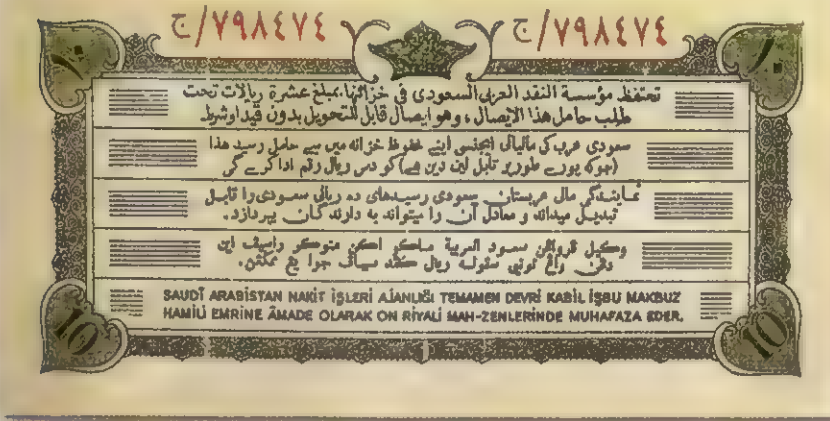 ج/٧٩٨٤٧٤ ج/٧٩٨٤٧٤
١٠ ١٠
تحتفظ مؤسسة النقد العربى السعودى فى خزائنها بمبلغ عشرة ريالات تحت
طلب حامل هذا الايصال، وهو ايصال قابل للتحويل بدون قيد اوشرط
سعودى عرب كى مالياتى ايجنسى اپنے محفوظ خزانہ میں سے حامل رسید هذا
(جوكہ پورے طور پر قابل لین دین ہے) کو دس ریال رقم ادا کرے گی
نمایندگی مال عربستان سعودی رسیدهای ده ریالی سعودی را قابل
تبدیل میداند و معادل آن را میتواند به دارندگان بپردازد.
وكيل سعود العربية اكن واسيف اين
سقوله ريال سياف جوا
SAUDİ ARABİSTAN NAKİT İŞLERİ AJANLIĞI TEMAMEN DEVRİ KABİL İŞBU MAKBUZ
HAMİLİ EMRİNE ÂMADE OLARAK ON RİYALİ MAH-ZENLERİNDE MUHAFAZA EDER.
10 10